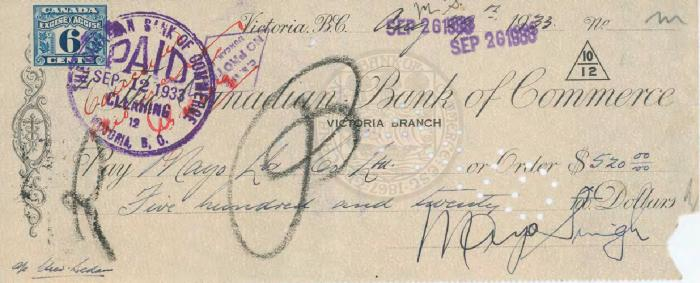 CANADA
EXCISE ACCISE
6
CENTS
THE CANADIAN BANK OF COMMERCE
PAID
SEP 12 1933
CLEARING
12
VICTORIA, B.C.
Victoria, B.C. 1933. No
SEP 26 1933
SEP 26 1933
10
12
Canadian Bank of Commerce
VICTORIA BRANCH
Pay Mayo Co. Ltd. or Order $520 00/00
Five hundred and twenty Dollars
Mayo Singh